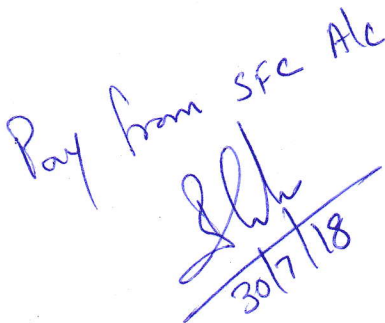 Pay from SFC A/c
30/7/18